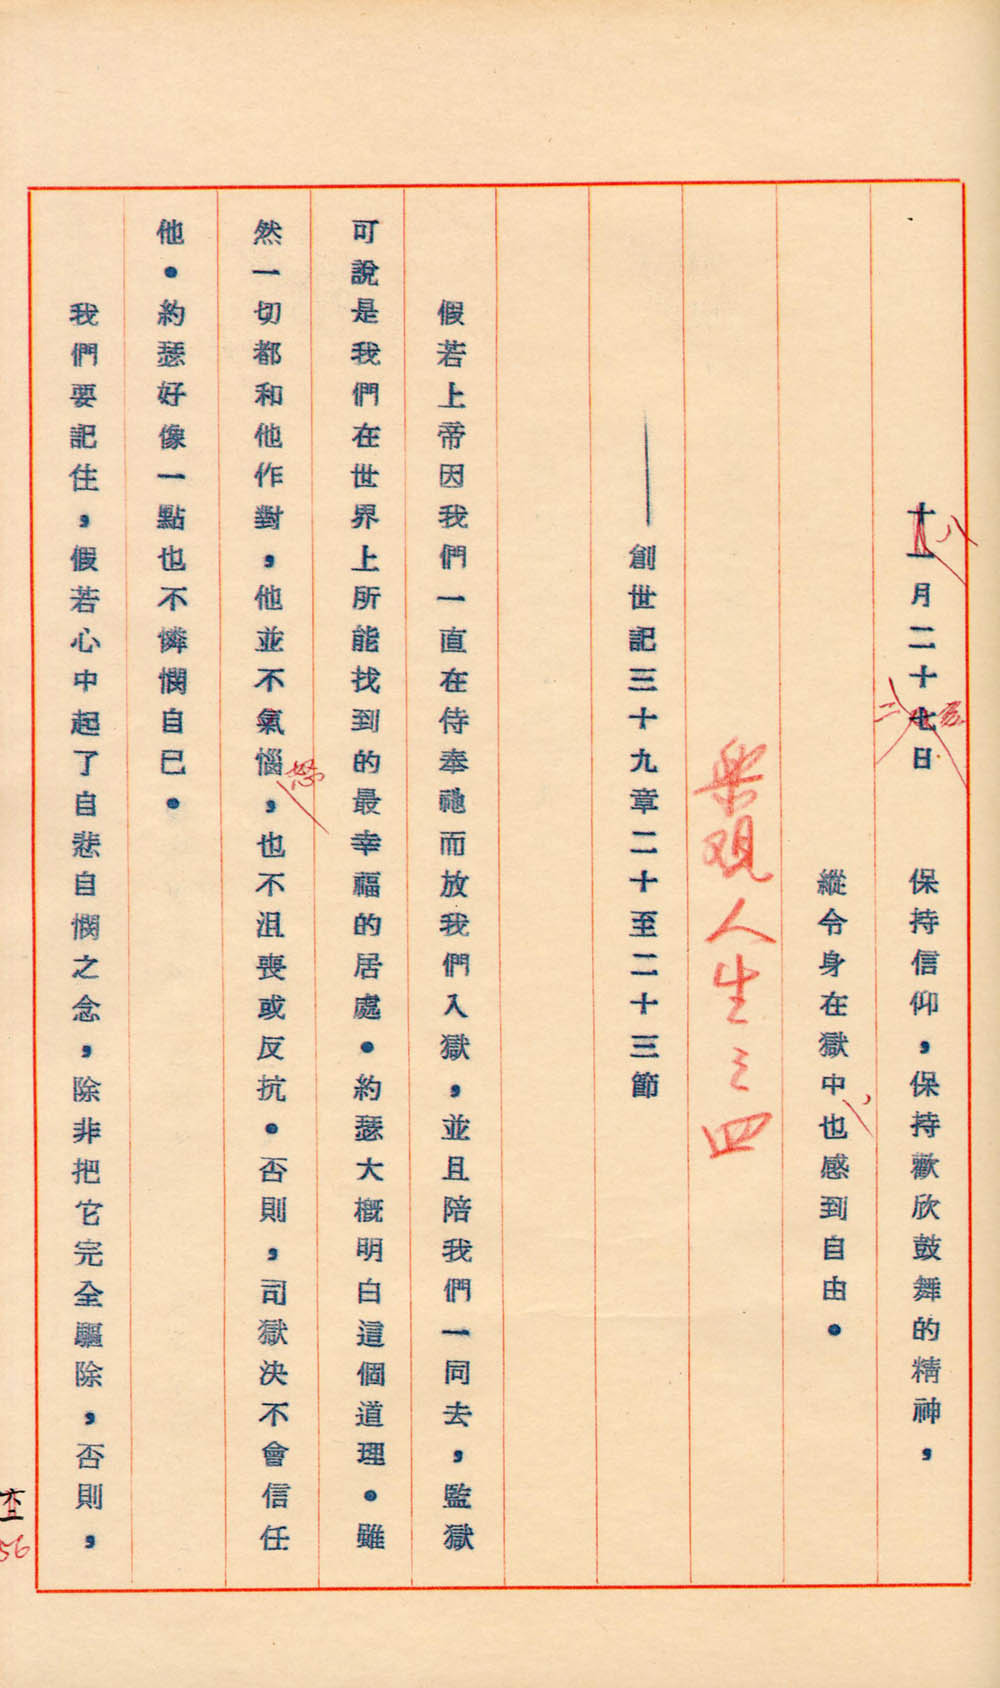 十一月二十七日　保持信仰，保持歡欣鼓舞的精神，
八
二
縱令身在獄中也感到自由。
樂观人生之四
——創世記三十九章二十至二十三節
假若上帝因我們一直在侍奉祂而放我們入獄，並且陪我們一同去，監獄
可說是我們在世界上所能找到的最幸福的居處。約瑟大概明白這個道理。雖
然一切都和他作對，他並不氣惱，也不沮喪或反抗。否則，司獄決不會信任
怒
他。約瑟好像一點也不憐憫自已。
我們要記住，假若心中起了自悲自憫之念，除非把它完全驅除，否則，
56